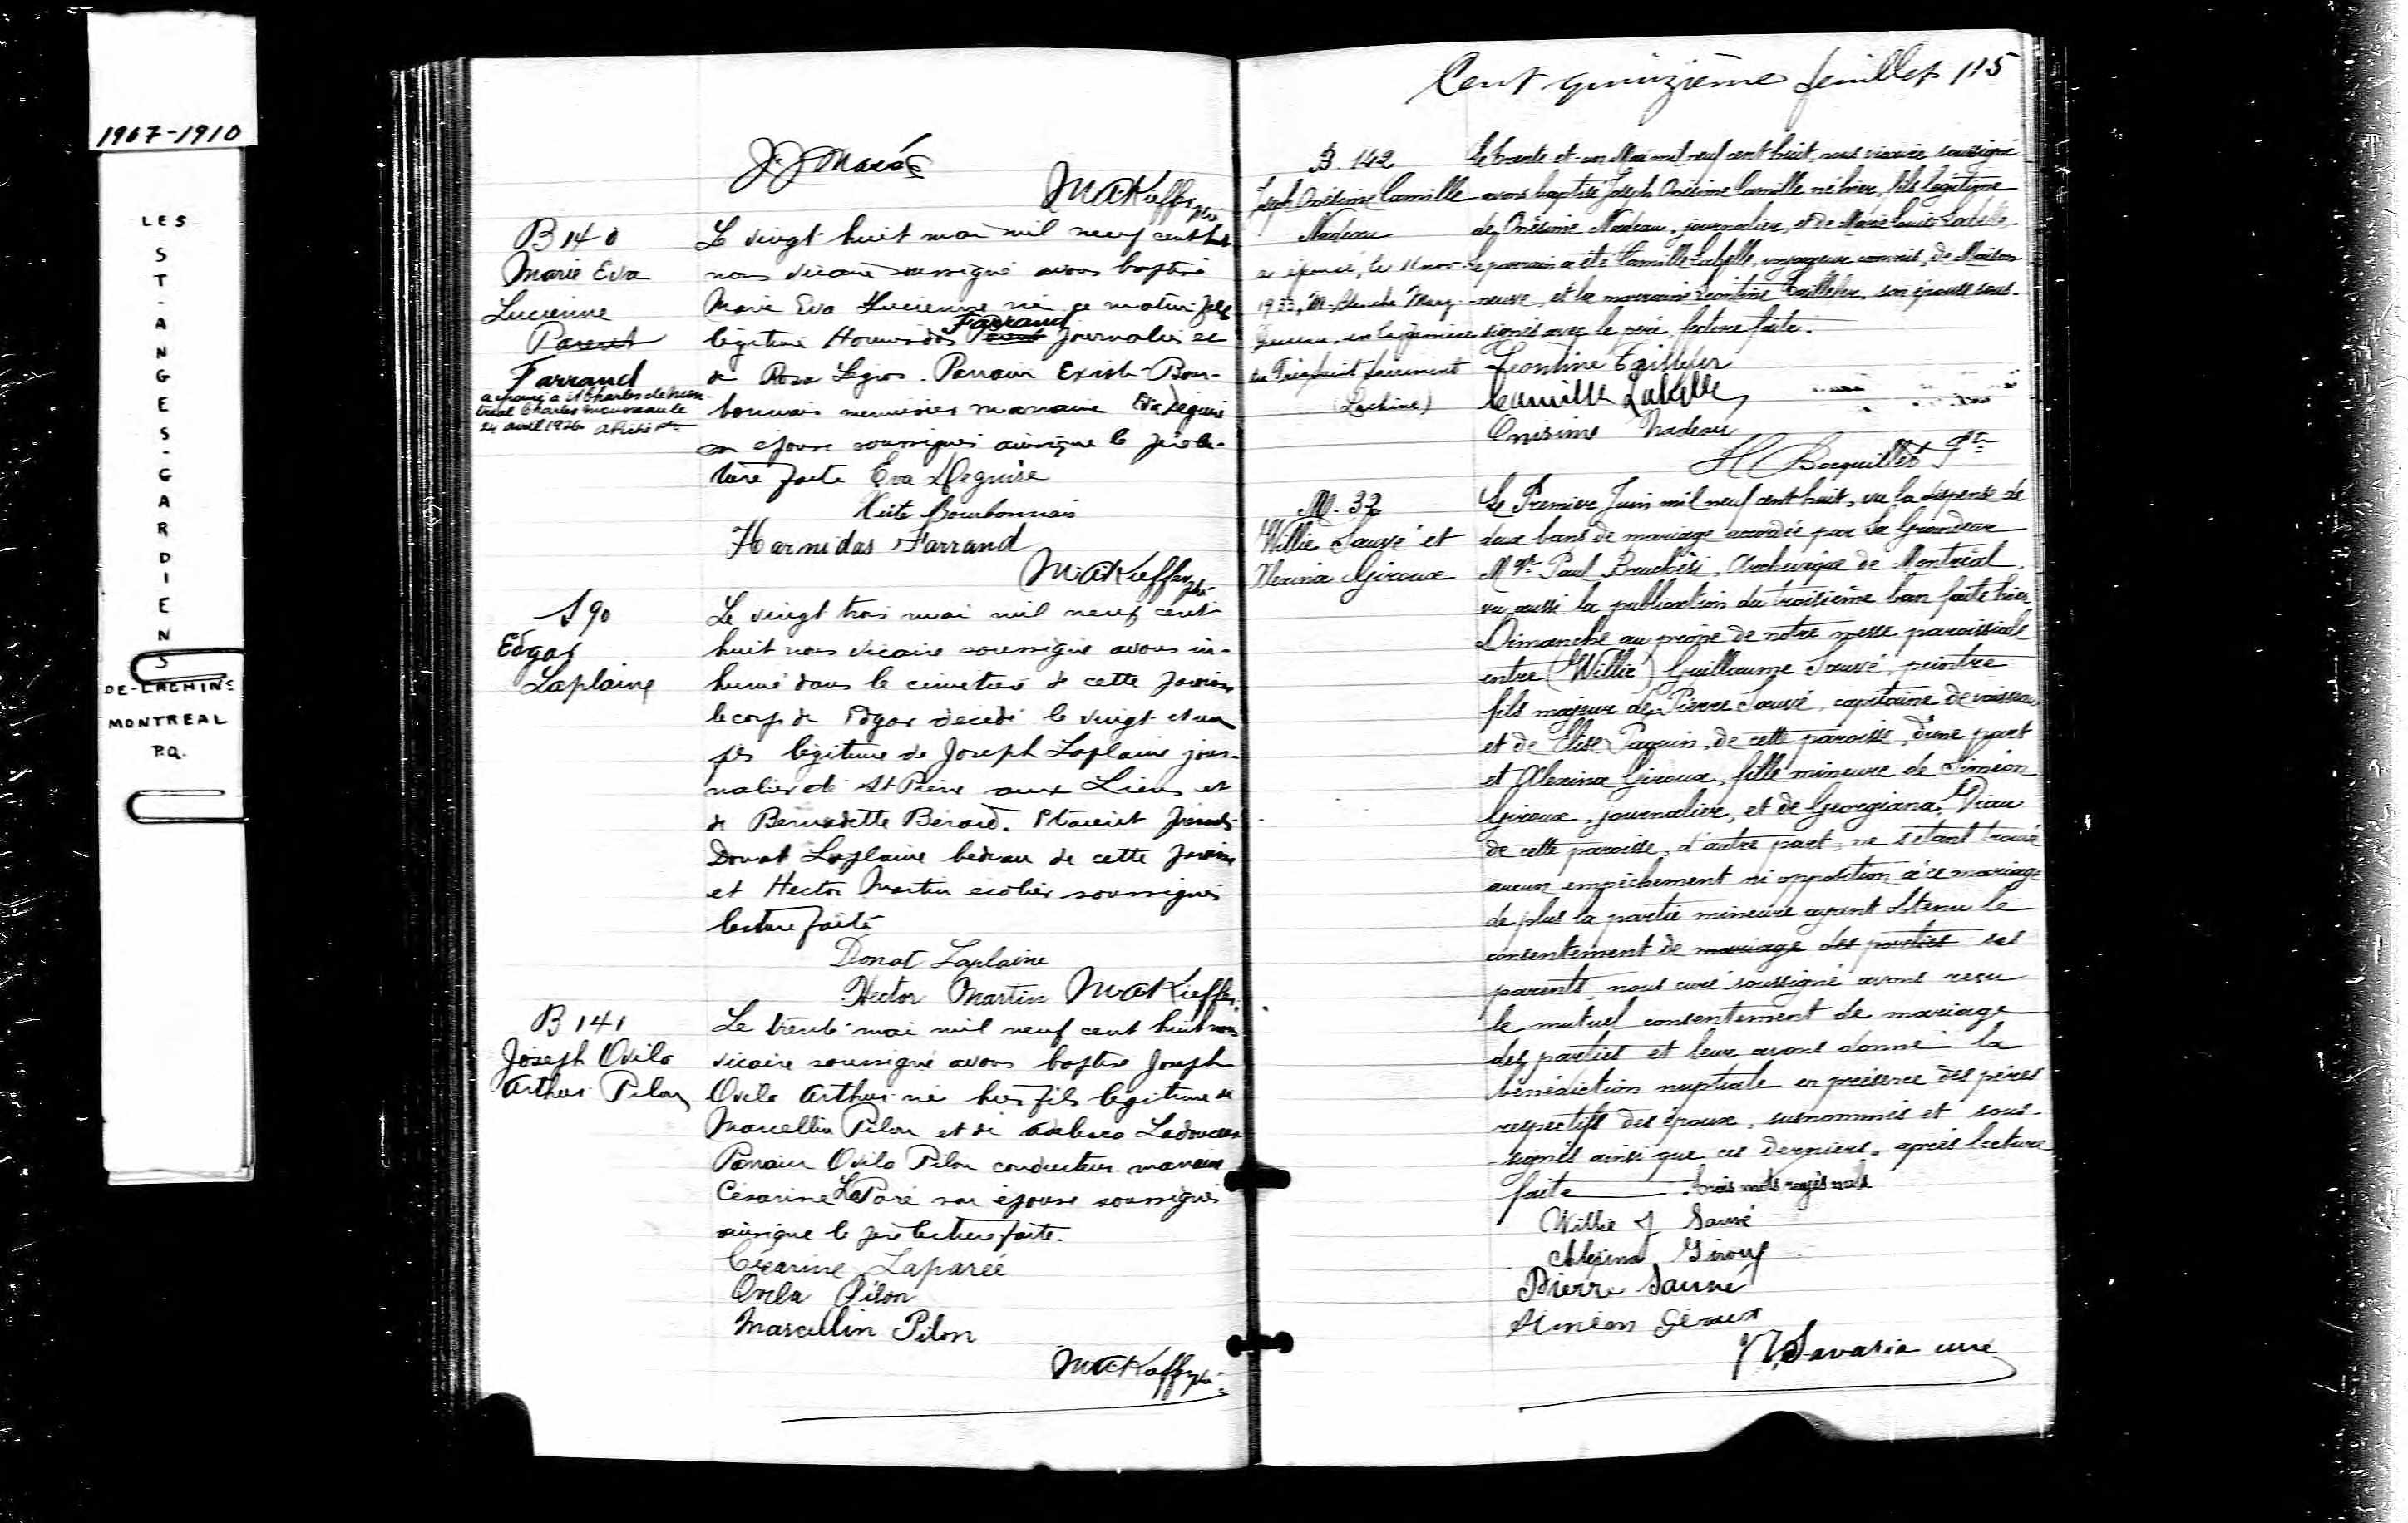 1967-1910
LES
ST-ANGES-GARDIENS
DE-LACHINE
MONTREAL
P.Q.
M A Kieffer ptre
B 140
Marie Eva
Lucienne
Parent
Farrand
a épousé à St Charles de Mon-
tréal Charles
24 avril 1926
Le vingt huit mai mil neuf cent huit
nous vicaire soussigné avons baptisé
Marie Eva Lucienne née ce matin fille
légitime Hormidas Farrand journalier et
de Rosa Legros. Parrain Exist Bour-
bonnais menuisier marraine Eva Deguire
son épouse soussignés ainsique le père lec-
ture faite Eva Deguire
Bourbonnais
Harmidas Farrand
M A Kieffer ptre
S 90
Edgar
Laplaine
Le vingt trois mai mil neuf cent
huit nous vicaire soussigné avons in-
humé dans le cimetière de cette paroisse
le corps de Edgar décédé le vingt et un
fils légitime de Joseph Laplaine jour-
nalier de St Pierre aux Liens et
de Bernadette Bérard. Etaient présents
Donat Laplaine bedeau de cette paroisse
et Hector Martin écolier soussignés
lecture faite
Donat Laplaine
Hector Martin M A Kieffer
B 141
Joseph Ovila
Arthur Pilon
Le trente mai mil neuf cent huit nous
vicaire soussigné avons baptisé Joseph
Ovila Arthur né hier fils légitime de
Marcellin Pilon et de Ladouceur
Parrain Ovila Pilon conducteur marraine
Césarine LaParé son épouse soussignés
ainsique le père lecture faite.
Césarine Laparéé
Ovila Pilon
Marcellin Pilon
M A Kieffer ptre
Cent quinzième feuillet 115
B. 142
Joseph Onésime Camille
Nadeau
a épousé, le 11 nov.
1933, M.
en la paroisse
du Très Saint Sacrement
(Lachine)
Le trente et un Mai mil neuf cent huit, nous vicaire soussigné
avons baptisé Joseph Onésime Camille né hier, fils légitime
de Onésime Nadeau, journalier, et de Marie Louise Labelle.
Le parrain a été Camille Labelle, voyageur commis, de Maison-
neuve, et la marraine Léontine Tailleur, son épouse sous-
signés avec le père, lecture faite.
Léontine Tailleur
Camille Labelle
Onisime Nadeau
H Bocquillet Ptre
M. 32
Willie Sauvé et
Alexina Giroux
Le Premier Juin mil neuf cent huit, vu la dispense de
deux bans de mariage accordée par Sa Grandeur
Mgr Paul Bruchési, Archevêque de Montréal,
vu aussi la publication du troisième ban faite hier
Dimanche au prône de notre messe paroissiale
entre (Willie) Guillaume Sauvé, peintre
fils majeur de Pierre Sauvé, capitaine de vaisseau
et de Elise Paquin, de cette paroisse, d'une part
et Alexina Giroux, fille mineure de Siméon
Giroux, journalier, et de Georgiana Viau
de cette paroisse, d'autre part, ne s'étant trouvé
aucun empêchement ni opposition à ce mariage
de plus la partie mineure ayant obtenu le
consentement de mariage des parties ses
parents, nous curé soussigné avons reçu
le mutuel consentement de mariage
des parties et leur avons donné la
bénédiction nuptiale en présence des pères
respectifs des époux, susnommés et sous-
signés ainsi que ces derniers, après lecture
faite trois mots rayés nuls
Willie J Sauvé
Alexina Giroux
Pierre Sauvé
Siméon Giroux
Savaria curé